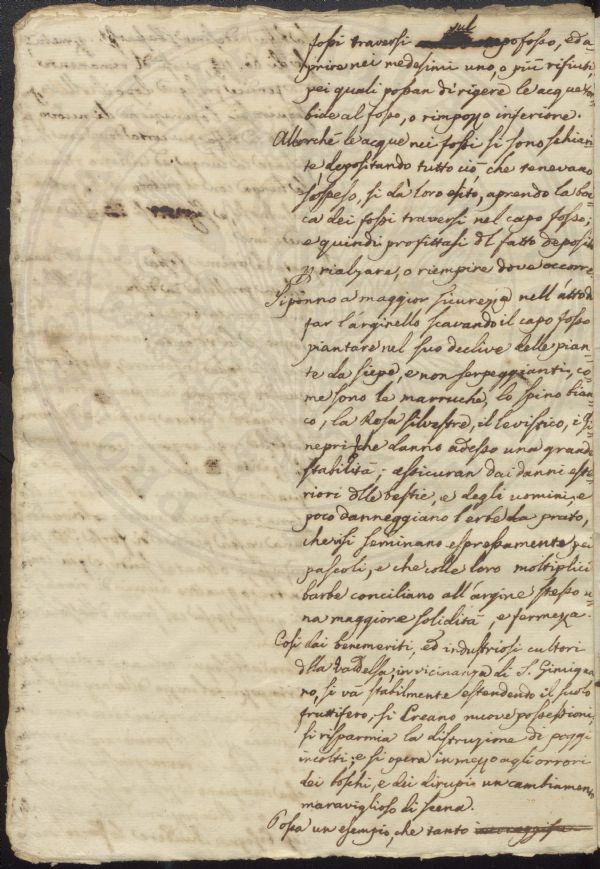 sul
fossi traversi capofosso, ed a
prire nei medesimi uno, o più rifiuti,
pei quali possan dirigere le acque tor
bide al fosso, o rimpozzo inferiore.
Allorchè le acque nei fossi si sono schiari
te depositando tutto ciò, che tenevano
sospeso, si dà loro esito, aprendo la boc
ca dei fossi traversi nel capo fosso;
e quindi profittasi dl fatto deposito
p rialzare, o riempire dove occorre.
Si ponno a maggior sicurezza nell'atto di
far l'arginello scavando il capo fosso
piantare nel suo declive delle pian
te da siepe, e non serpeggianti, co
me sono le marruche, lo spino bian
co, la Rosa silvestre, il levistico, i Gi
nepri, che danno ad esso una grande
stabilità; assicuran dai danni este
riori dlle bestie, e degli uomini, e
poco danneggiano l'erbe da prato,
che vi si seminano espressamente pei
pascoli, e che colle loro moltiplici
barbe conciliano all'argine stesso u
na maggiore solidità, e fermezza.
Così dai benemeriti, ed industriosi cultori
dlla Valdelsa, in vicinanza di S. Gimigna
no, si va stabilmente estendendo il suolo
fruttifero, si creano nuove possessioni,
si risparmia la distruzione di poggi
incolti; e si opera in mezzo agli orrori
dei boschi, e dei dirupi un cambiamento
maraviglioso di scena.
Possa un esempio, che tanto